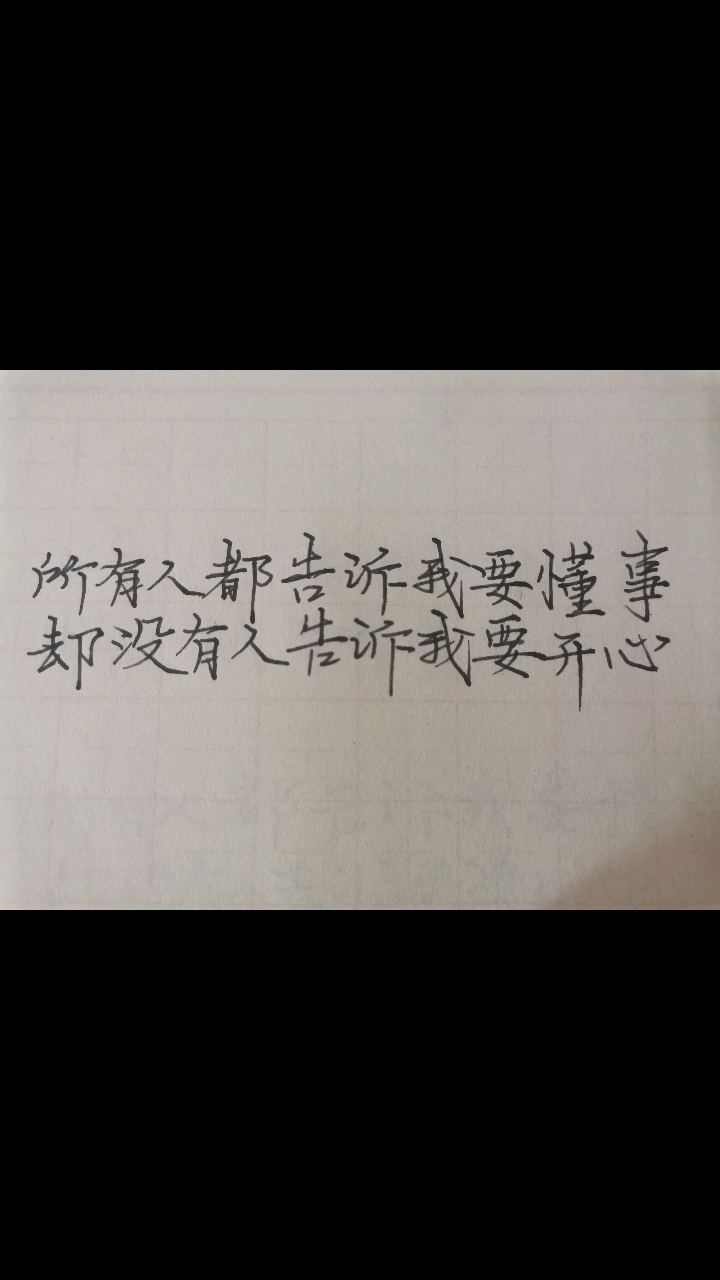 所有人都告诉我要懂事
却没有人告诉我要开心